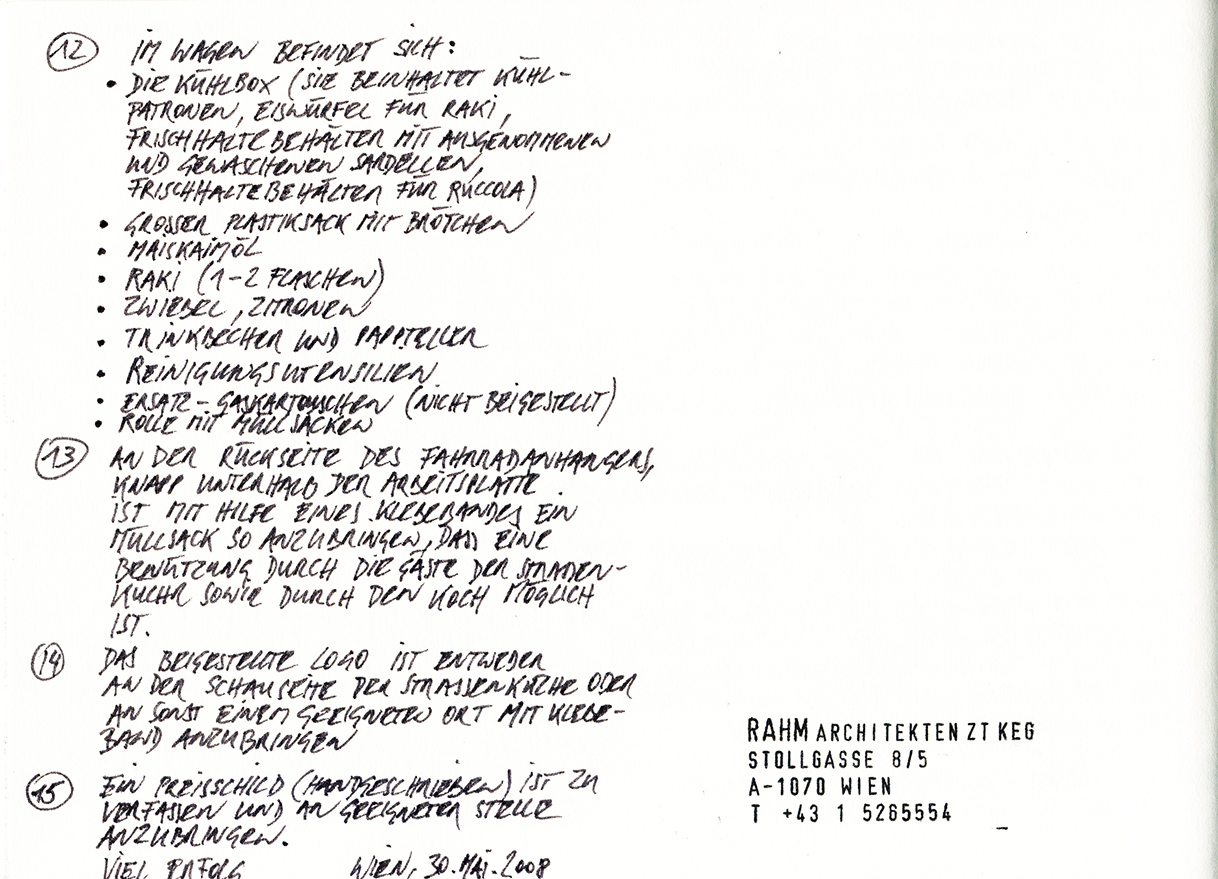 12 IM WAGEN BEFINDET SICH:
• DIE KÜHLBOX (SIE BEINHALTET KÜHL-
PATRONEN, EISWÜRFEL FÜR RAKI,
FRISCHHALTEBEHÄLTER MIT AUSGENOMMENEN
UND GEWASCHENEN SARDELLEN,
FRISCHHALTEBEHÄLTER FÜR RUCCOLA)
• GROSSER PLASTIKSACK MIT BRÖTCHEN
• MAISKAIMÖL
• RAKI (1-2 FLASCHEN)
• ZWIEBEL, ZITRONEN
• TRINKBECHER UND PAPPTELLER
• REINIGUNGSUTENSILIEN
• ERSATZ-GASKARTOUSCHEN (NICHT BEIGESTELLT)
• ROLLE MIT MÜLLSÄCKEN
13 AN DER RÜCKSEITE DES FAHRRADANHÄNGERS,
KNAPP UNTERHALB DER ARBEITSPLATTE
IST MIT HILFE EINES KLEBEBANDES EIN
MÜLLSACK SO ANZUBRINGEN, DASS EINE
BENÜTZUNG DURCH DIE GÄSTE DER STRASSEN-
KÜCHE SOWIE DURCH DEN KOCH MÖGLICH
IST.
14 DAS BEIGESTELLTE LOGO IST ENTWEDER
AN DER SCHAUSEITE DER STRASSENKÜCHE ODER
AN SONST EINEM GEEIGNETEN ORT MIT KLEBE-
BAND ANZUBRINGEN
15 EIN PREISSCHILD (HANDGESCHRIEBEN) IST ZU
VERFASSEN UND AN GEEIGNETER STELLE
ANZUBRINGEN.
VIEL ERFOLG WIEN, 30. MAI. 2008
RAHM ARCHITEKTEN ZT KEG
STOLLGASSE 8/5
A-1070 WIEN
T +43 1 5265554